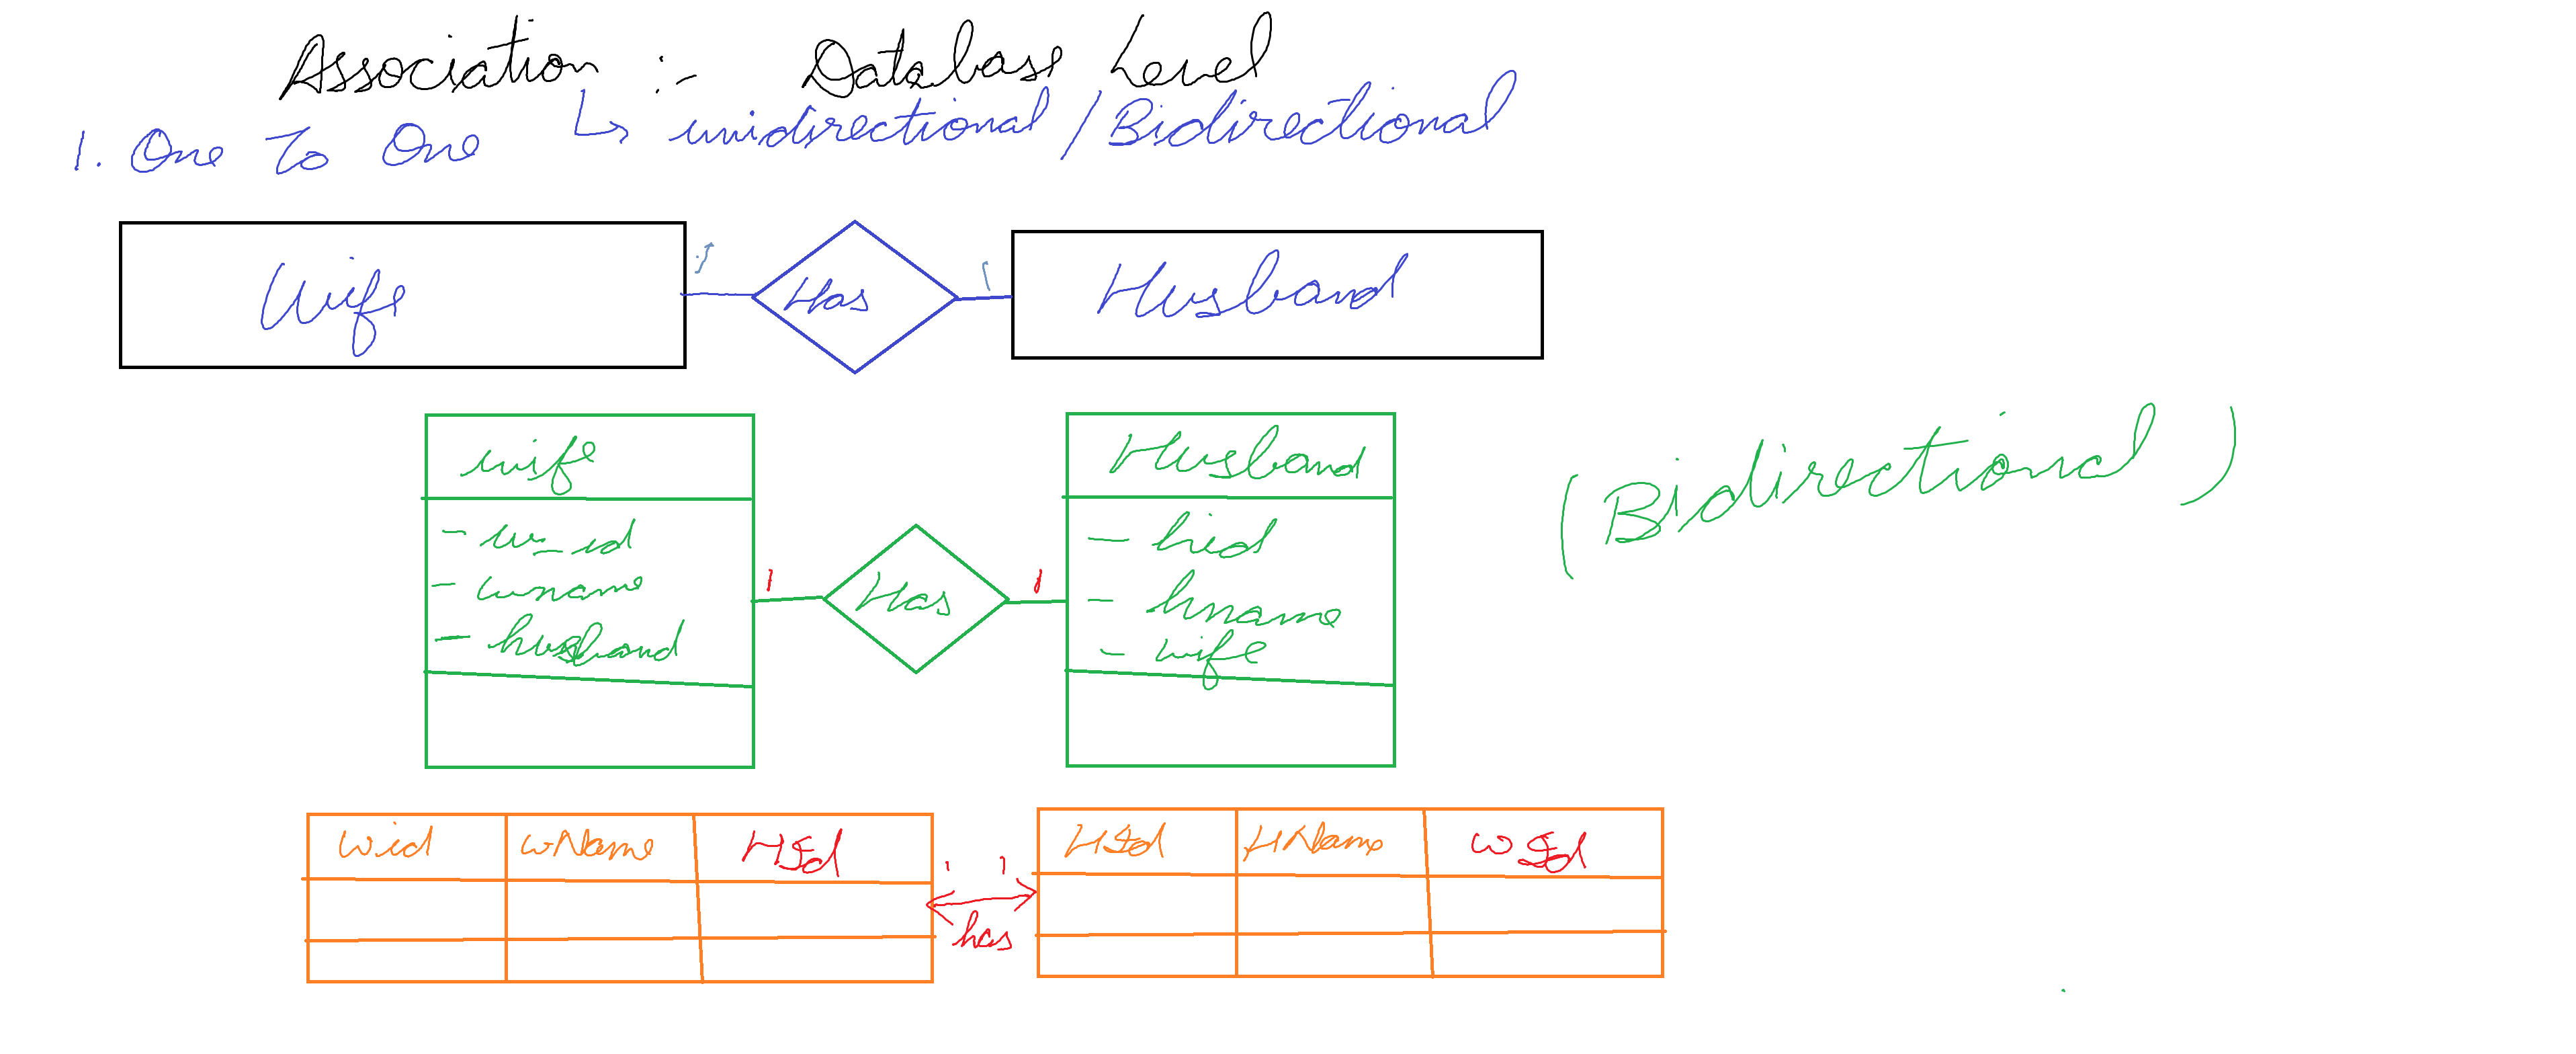 Association :- Database Level
↳ unidirectional / Bidirectional
1. One To One
Wife 1 Has 1 Husband
wife
- w_id
- wname
- husband
1 Has 1
Husband
- hid
- hname
- wife
(Bidirectional)
Wid wName HId
1 1
has
HId HName WId